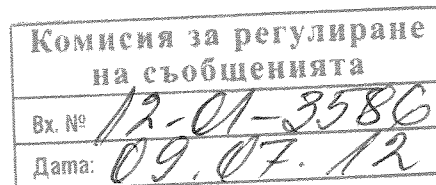 Комисия за регулиране
на съобщенията
Вх. № 12-01-3586
Дата: 09.07.12